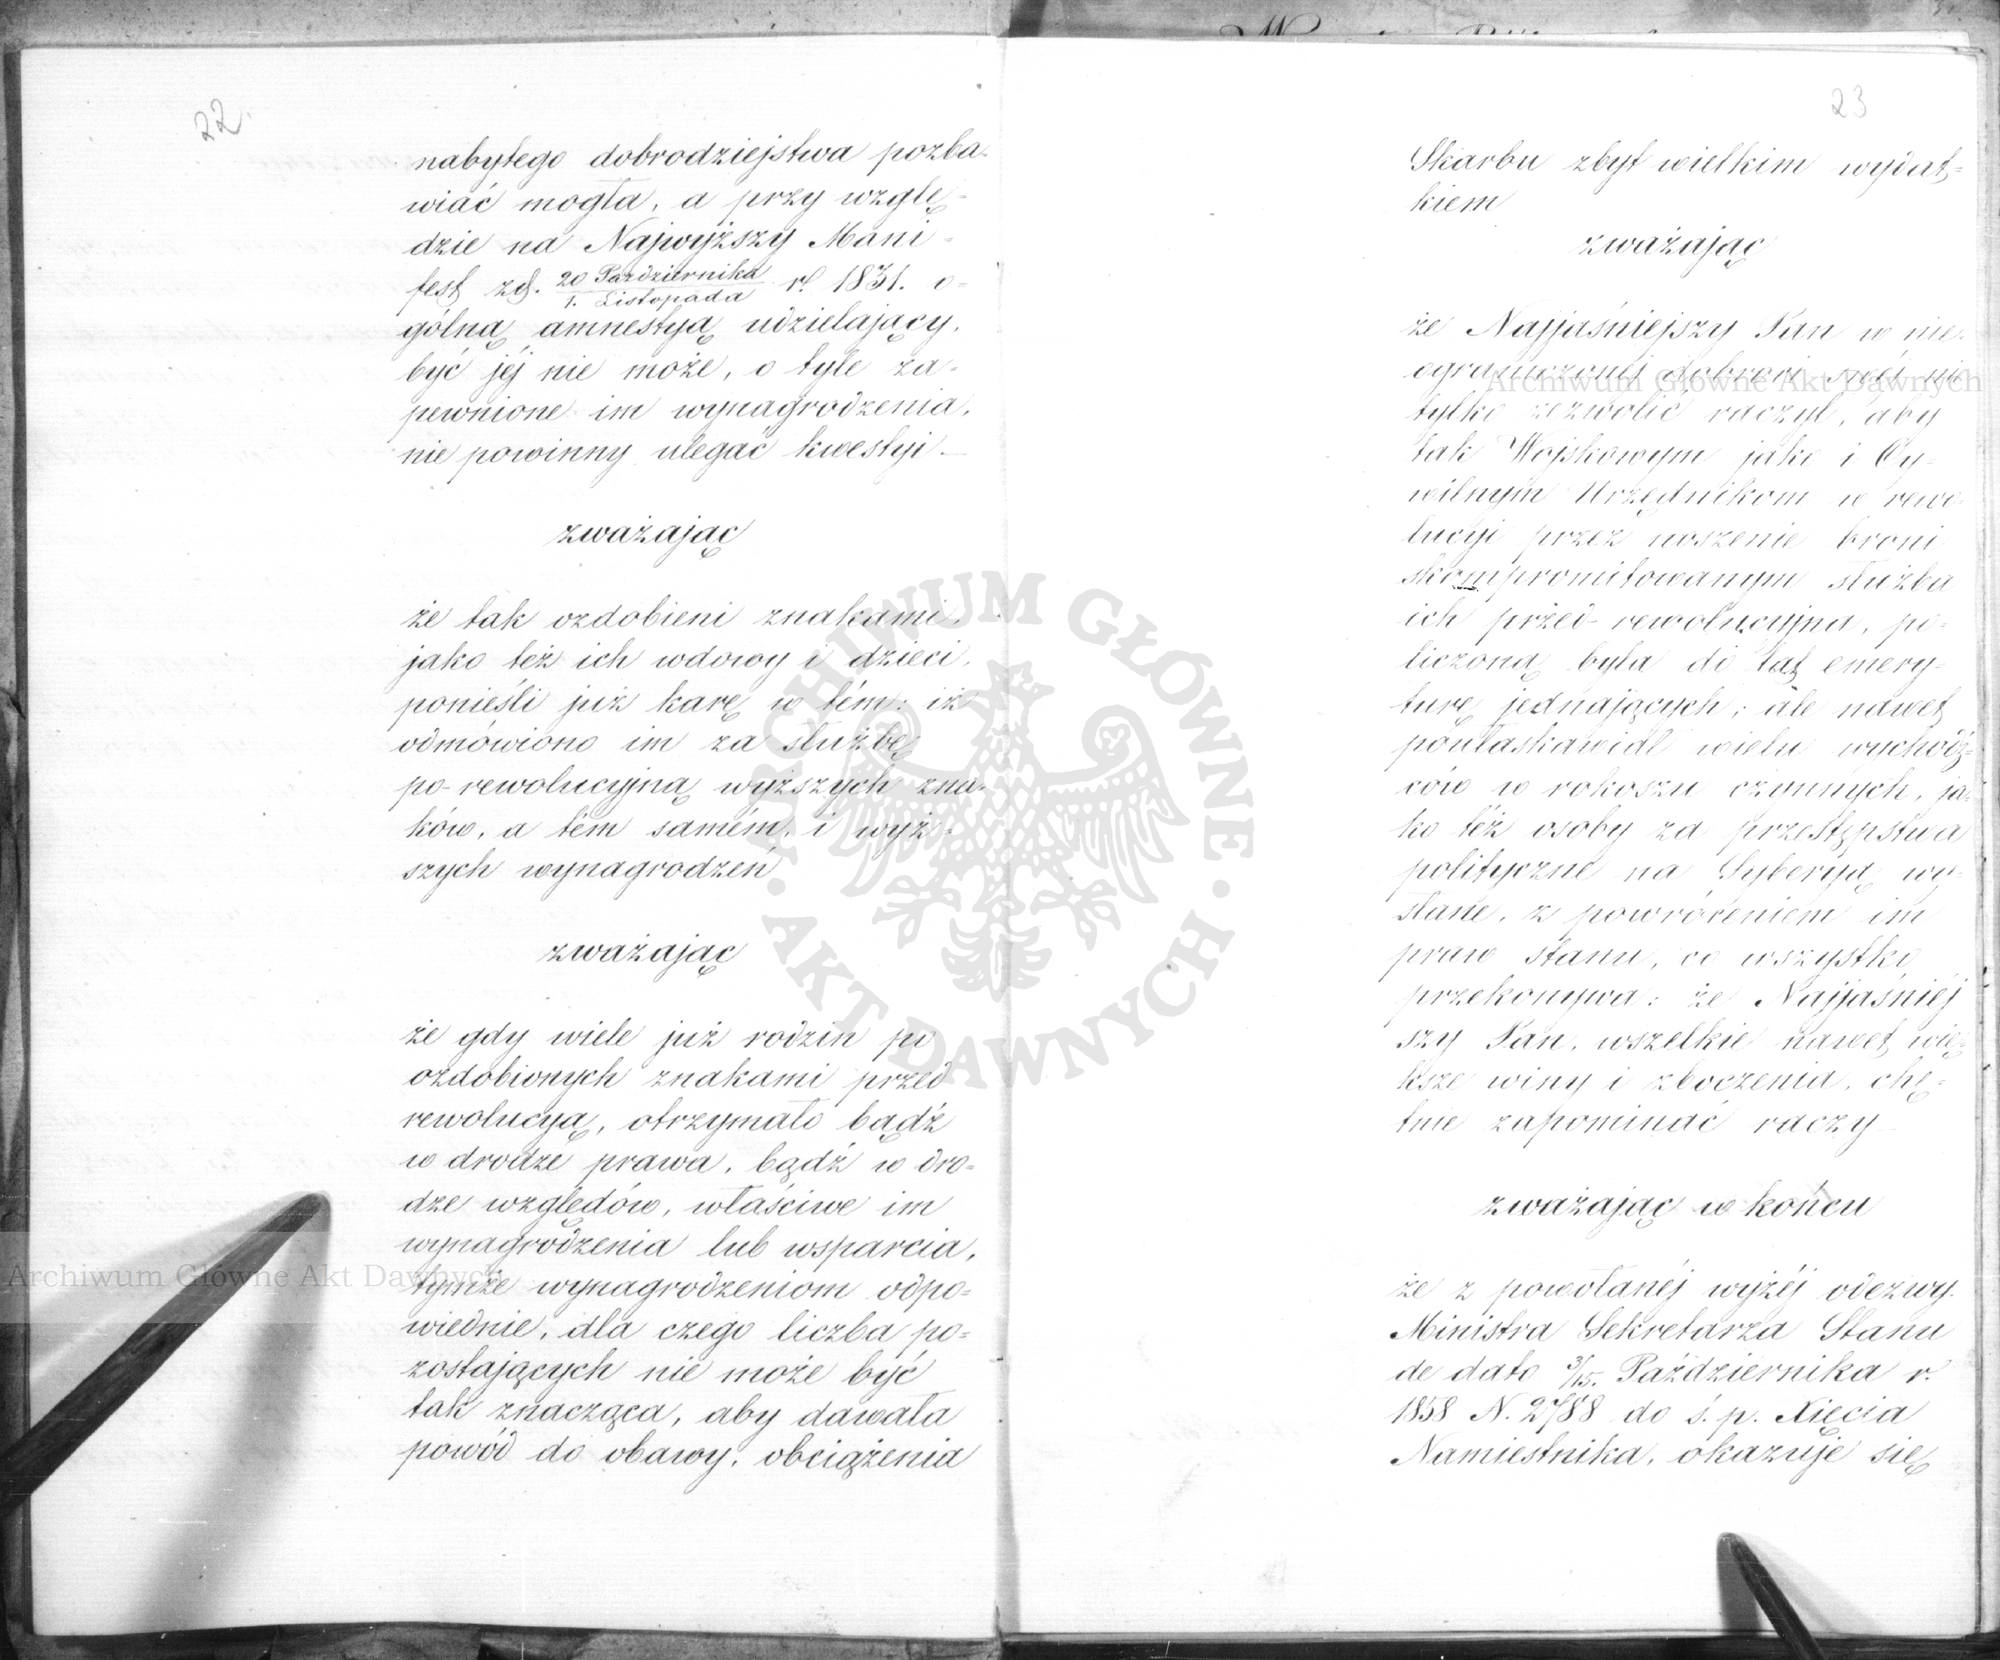 22.
nabytego dobrodziejstwa pozba-
wiać mogła, a przy wzglę-
dzie na Najwyższy Mani-
fest zd. 20 Października / 1. Listopada r. 1831. o-
gólną amnestyą udzielający,
być jéj nie może, o tyle za-
pewnione im wynagrodzenia,
nie powinny ulegać kwestyi —
zważając
że tak ozdobieni znakami,
jako też ich wdowy i dzieci,
ponieśli już karę w tém: iż
odmówiono im za służbę
po-rewolucyjną wyższych zna-
ków, a tém samém, i wyż-
szych wynagrodzeń
zważając
że gdy wiele już rodzin po
ozdobionych znakami przed
rewolucyą, otrzymało bądź
w drodze prawa, bądź w dro-
dze względów, właściwe im
wynagrodzenia lub wsparcia,
tymże wynagrodzeniom odpo-
wiednie, dla czego liczba po-
zostających nie może być
tak znacząca, aby dawała
powód do obawy, obciążenia
23
Skarbu zbyt wielkim wydat-
kiem
zważając
że Najjaśniejszy Pan w nie-
ograniczonéj dobroci swéj nie
tylko zezwolić raczył, aby
tak Wojskowym jako i Cy-
wilnym Urzędnikom w rewo-
lucyi przez noszenie broni
skompromitowanym służba
ich przed-rewolucyjna, po-
liczoną była do lat emery-
turę jednających; ale nawet
poułaskawiał wielu wychodź-
ców w rokoszu czynnych, ja-
ko też osoby za przestępstwa
polityczne na Syberyą wy-
słane, z powróceniem im
praw stanu, co wszystko
przekonywa: że Najjaśniéj
szy Pan, wszelkie nawet wię-
ksze winy i zboczenia, chę-
tnie zapominać raczy —
zważając w końcu
że z powołanéj wyżéj odezwy
Ministra Sekretarza Stanu
de dato 3/15. Października r.
1858 N. 2788 do ś. p. Xięcia
Namiestnika, okazuje się
ARCHIWUM GŁÓWNE AKT DAWNYCH
Archiwum Główne Akt Dawnych
Archiwum Główne Akt Dawnych